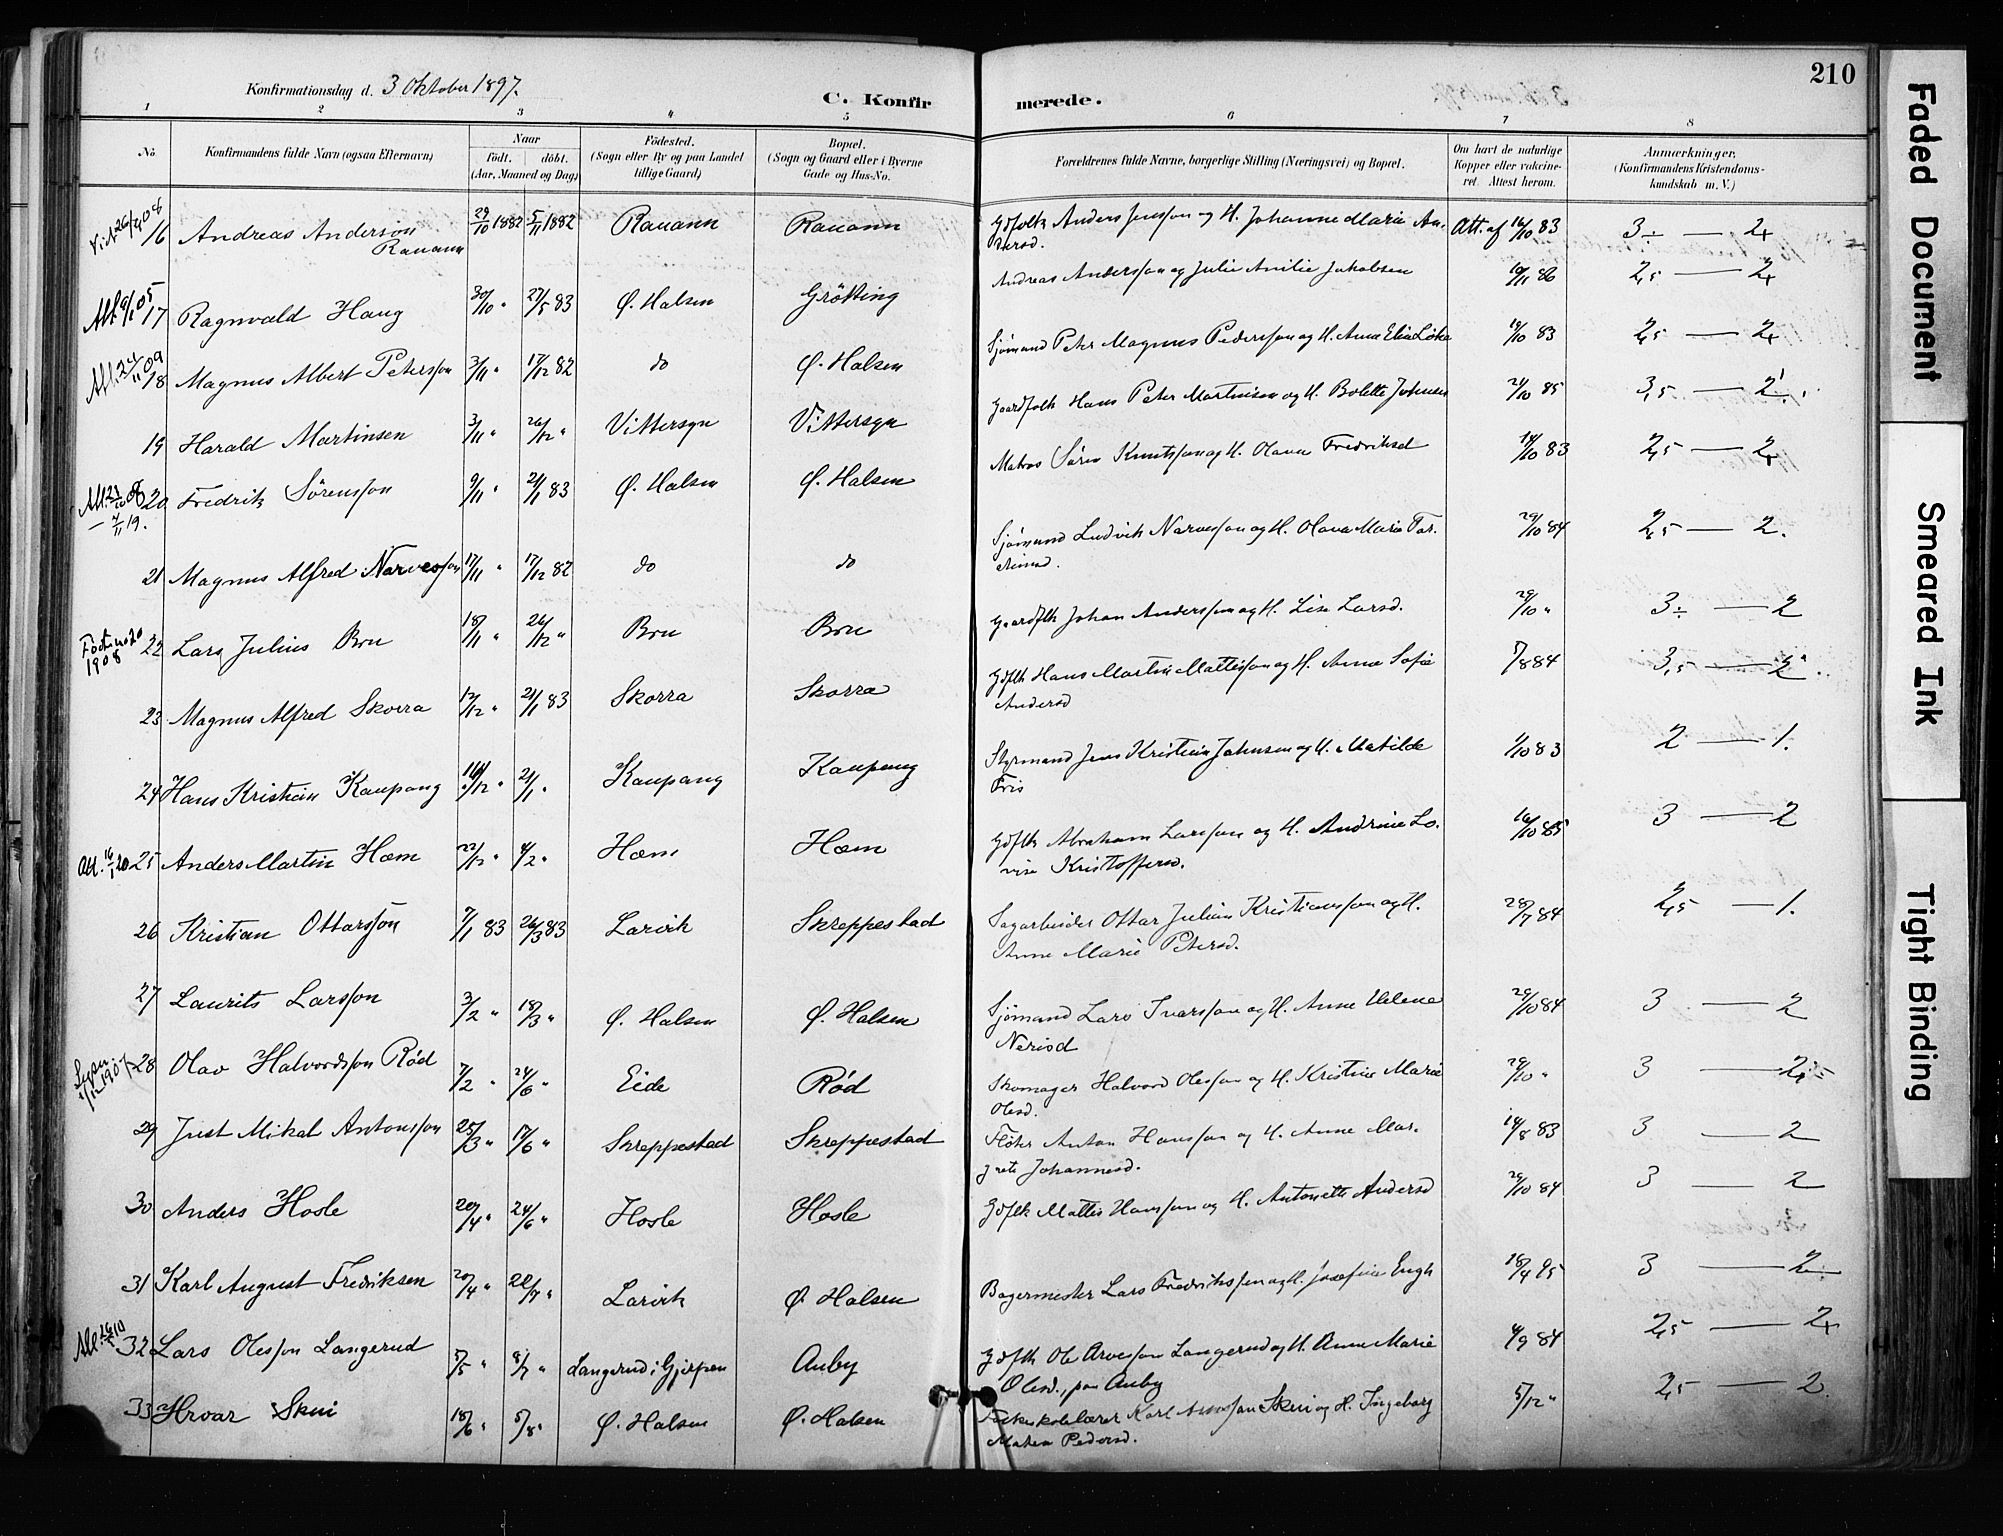 210
Konfirmationsdag d. 3 Oktober 1897.
C. Konfirmerede.
1 2 3 4 5 6 7 8
No
Konfirmandens fulde Navn (ogsaa Efternavn)
Naar
født. døbt.
(Aar, Maaned og Dag)
Fødested.
(Sogn eller By og paa Landet
tillige Gaard)
Bopæl.
(Sogn og Gaard eller i Byerne
Gade og Hus-No.
Forældrenes fulde Navne, borgerlige Stilling (Næringsvei) og Bopæl.
Om havt de naturlige
Kopper eller vakcine-
ret. Attest herom.
Anmærkninger.
(Konfirmandens Kristendoms-
kundskab m. V.)
16 Andreas Anderson Rauann 29/10 1882 5/11 1882 Rauann Rauann Gdfolk Anders Jensson og H. Johanne Marie Andersd. Att. af 16/10 83 3÷ — 2+
17 Ragnvald Haug 30/10 " 27/5 83 Ø. Halsen Grøtting Andreas Anderssøn og Julie Amilie Jakobsen 86 2,5 — 2+
Att. 24/11 09 18 Magnus Albert Petersson 3/11 " 17/12 82 do Ø. Halsen Sjømand Peter Magnus Pedersson og H. Anne Elia 83 2,5 — 2+
19 Harald Martinsen 3/11 " 26/12 " Vittersyn Vittersyn Gaardfolk Hans Peter Martinsen og H. Bolette Johnsen 21/10 85 3,5 — 2
20 Fredrik Sørensson 9/11 " 21/1 83 Ø. Halsen Ø. Halsen Matros Søren Knutsson og H. Olava Fredriksd 83 2,5 — 2+
21 Magnus Alfred Narvesson 17/11 " 17/12 82 do do Sjømand Ludvik Narvesson og H. Olava Marie 29/10 84 2,5 — 2.
22 Lars Julius Bru 18/11 " 26/12 " Bru Bru Gaardflk Johan Andersson og H. Lise Larsd. 29/10 " 3÷ — 2
23 Magnus Alfred Skorra 12/12 " 21/1 83 Skorra Skorra Gdflk Hans Martin Mattisson og H. Anne Sofie Andersd 5/8 84 3,5 — 2
24 Hans Kristian Kaupang 21/1 " Kaupang Kaupang Styrmand Jens Kristian Johnsen og H. Matilde Fris 1/10 83 2 — 1.
Att. 16/1 20 25 Anders Martin Hæm 22/12 " 4/2 " Hæm Hæm Gdflk Abraham Larsson og H. Andrine Lovise Kristoffersd. 16/10 85 3 — 2
26 Kristian Ottarsson 7/1 83 26/3 83 Larvik Skreppestad Sagarbeider Ottar Julian Kristiansson og H. Anne Marie Petersd. 28/7 84 2,5 — 1.
27 Laurits Larsson 3/2 " 18/3 " Ø. Halsen Ø. Halsen Sjømand Lars Ivarsson og H. Anne Helene Nerisd 29/10 84 3 — 2
28 Olav Halvordsson Rød 7/2 " 24/6 " Eide Rød Skomager Halvord Olesson og H. Kristine Marie Olesd. 29/10 " 3 — 2
29 Just Mikal Antonsson 25/3 " 17/6 " Skreppestad Skreppestad Fløter Anton Hansson og H. Anne Margrete Johannesd. 14/8 83 3 — 2
30 Anders Hosle 20/4 " 24/6 " Hosle Hosle Gdflk Mattis Hansson og H. Antonette Andersd 29/10 84 3 — 2
31 Karl August Fredriksen 20/4 " 22/7 " Larvik Ø. Halsen Bagermester Lars Fredriksson og H. Josefine Engh 18/4 95 3 — 2
32 Lars Olesson Langerud 5/5 " 8/7 " Langerud i Gjerpen Auby Gdflk Ole Arvesson Langerud og H. Anne Marie Olesd., paa Auby 4/9 84 2,5 — 2+
33 Hroar Skui 18/6 " 5/8 " Ø. Halsen Ø. Halsen Folkeskolelærer Karl Skui og H. Ingeborg Matea Pedersd. 5/12 " 2,5 — 2.
Faded Document
Smeared Ink
Tight Binding